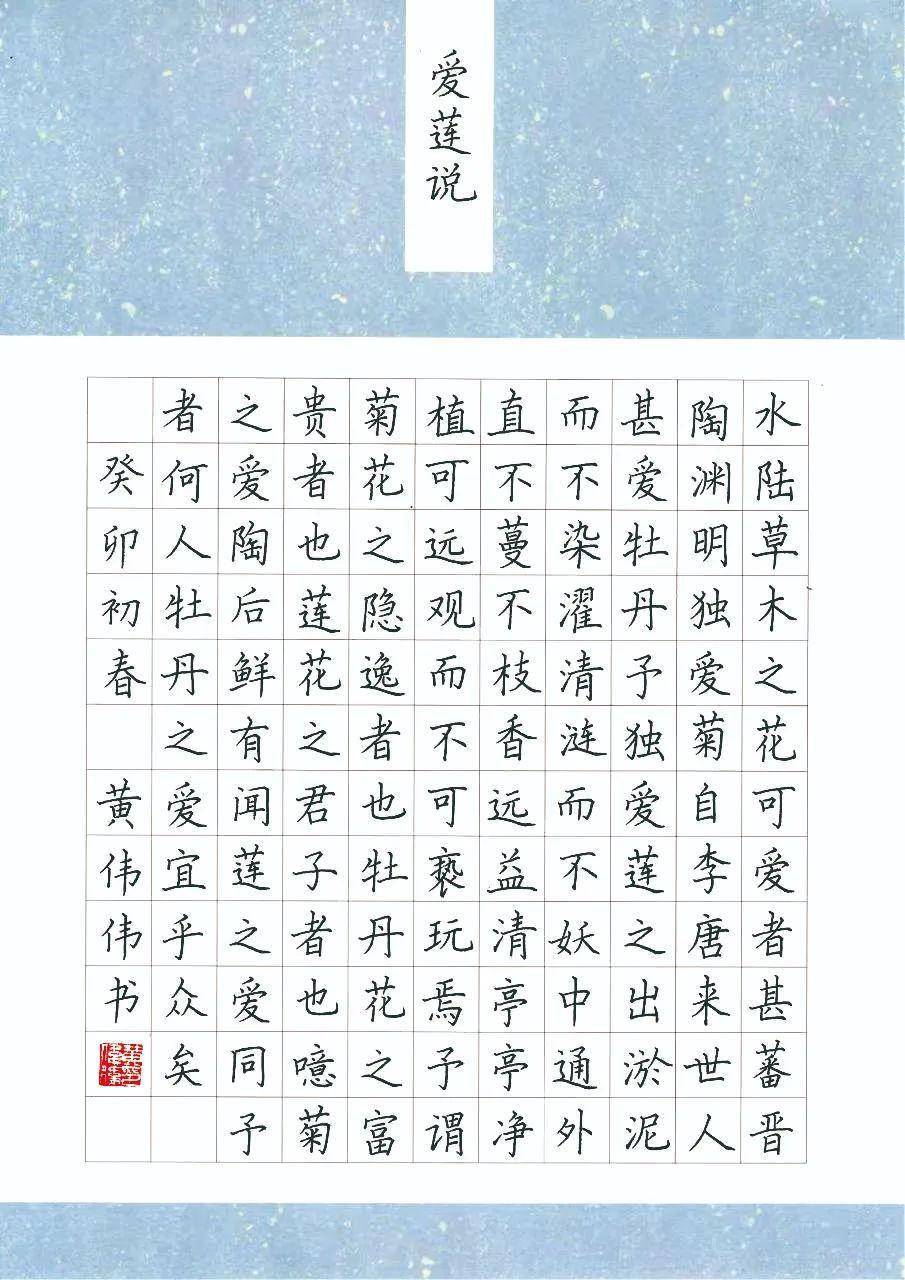 爱莲说
水陆草木之花可爱者甚蕃晋
陶渊明独爱菊自李唐来世人
甚爱牡丹予独爱莲之出淤泥
而不染濯清涟而不妖中通外
直不蔓不枝香远益清亭亭净
植可远观而不可亵玩焉予谓
菊花之隐逸者也牡丹花之富
贵者也莲花之君子者也噫菊
之爱陶后鲜有闻莲之爱同予
者何人牡丹之爱宜乎众矣
癸卯初春 黄伟伟书